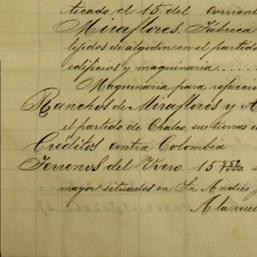 ticado el 15 del corrient
Miraflores. Fábrica
tejidos de algodon en el partido
edificios y maquinaria....
Maquinaria para refaccion
Ranchos de Miraflores y A
el partido de Chalco, sus tierras
Créditos contra Colombia
Terrenos del 15
mayor situados en Sn Andrés
A la vue